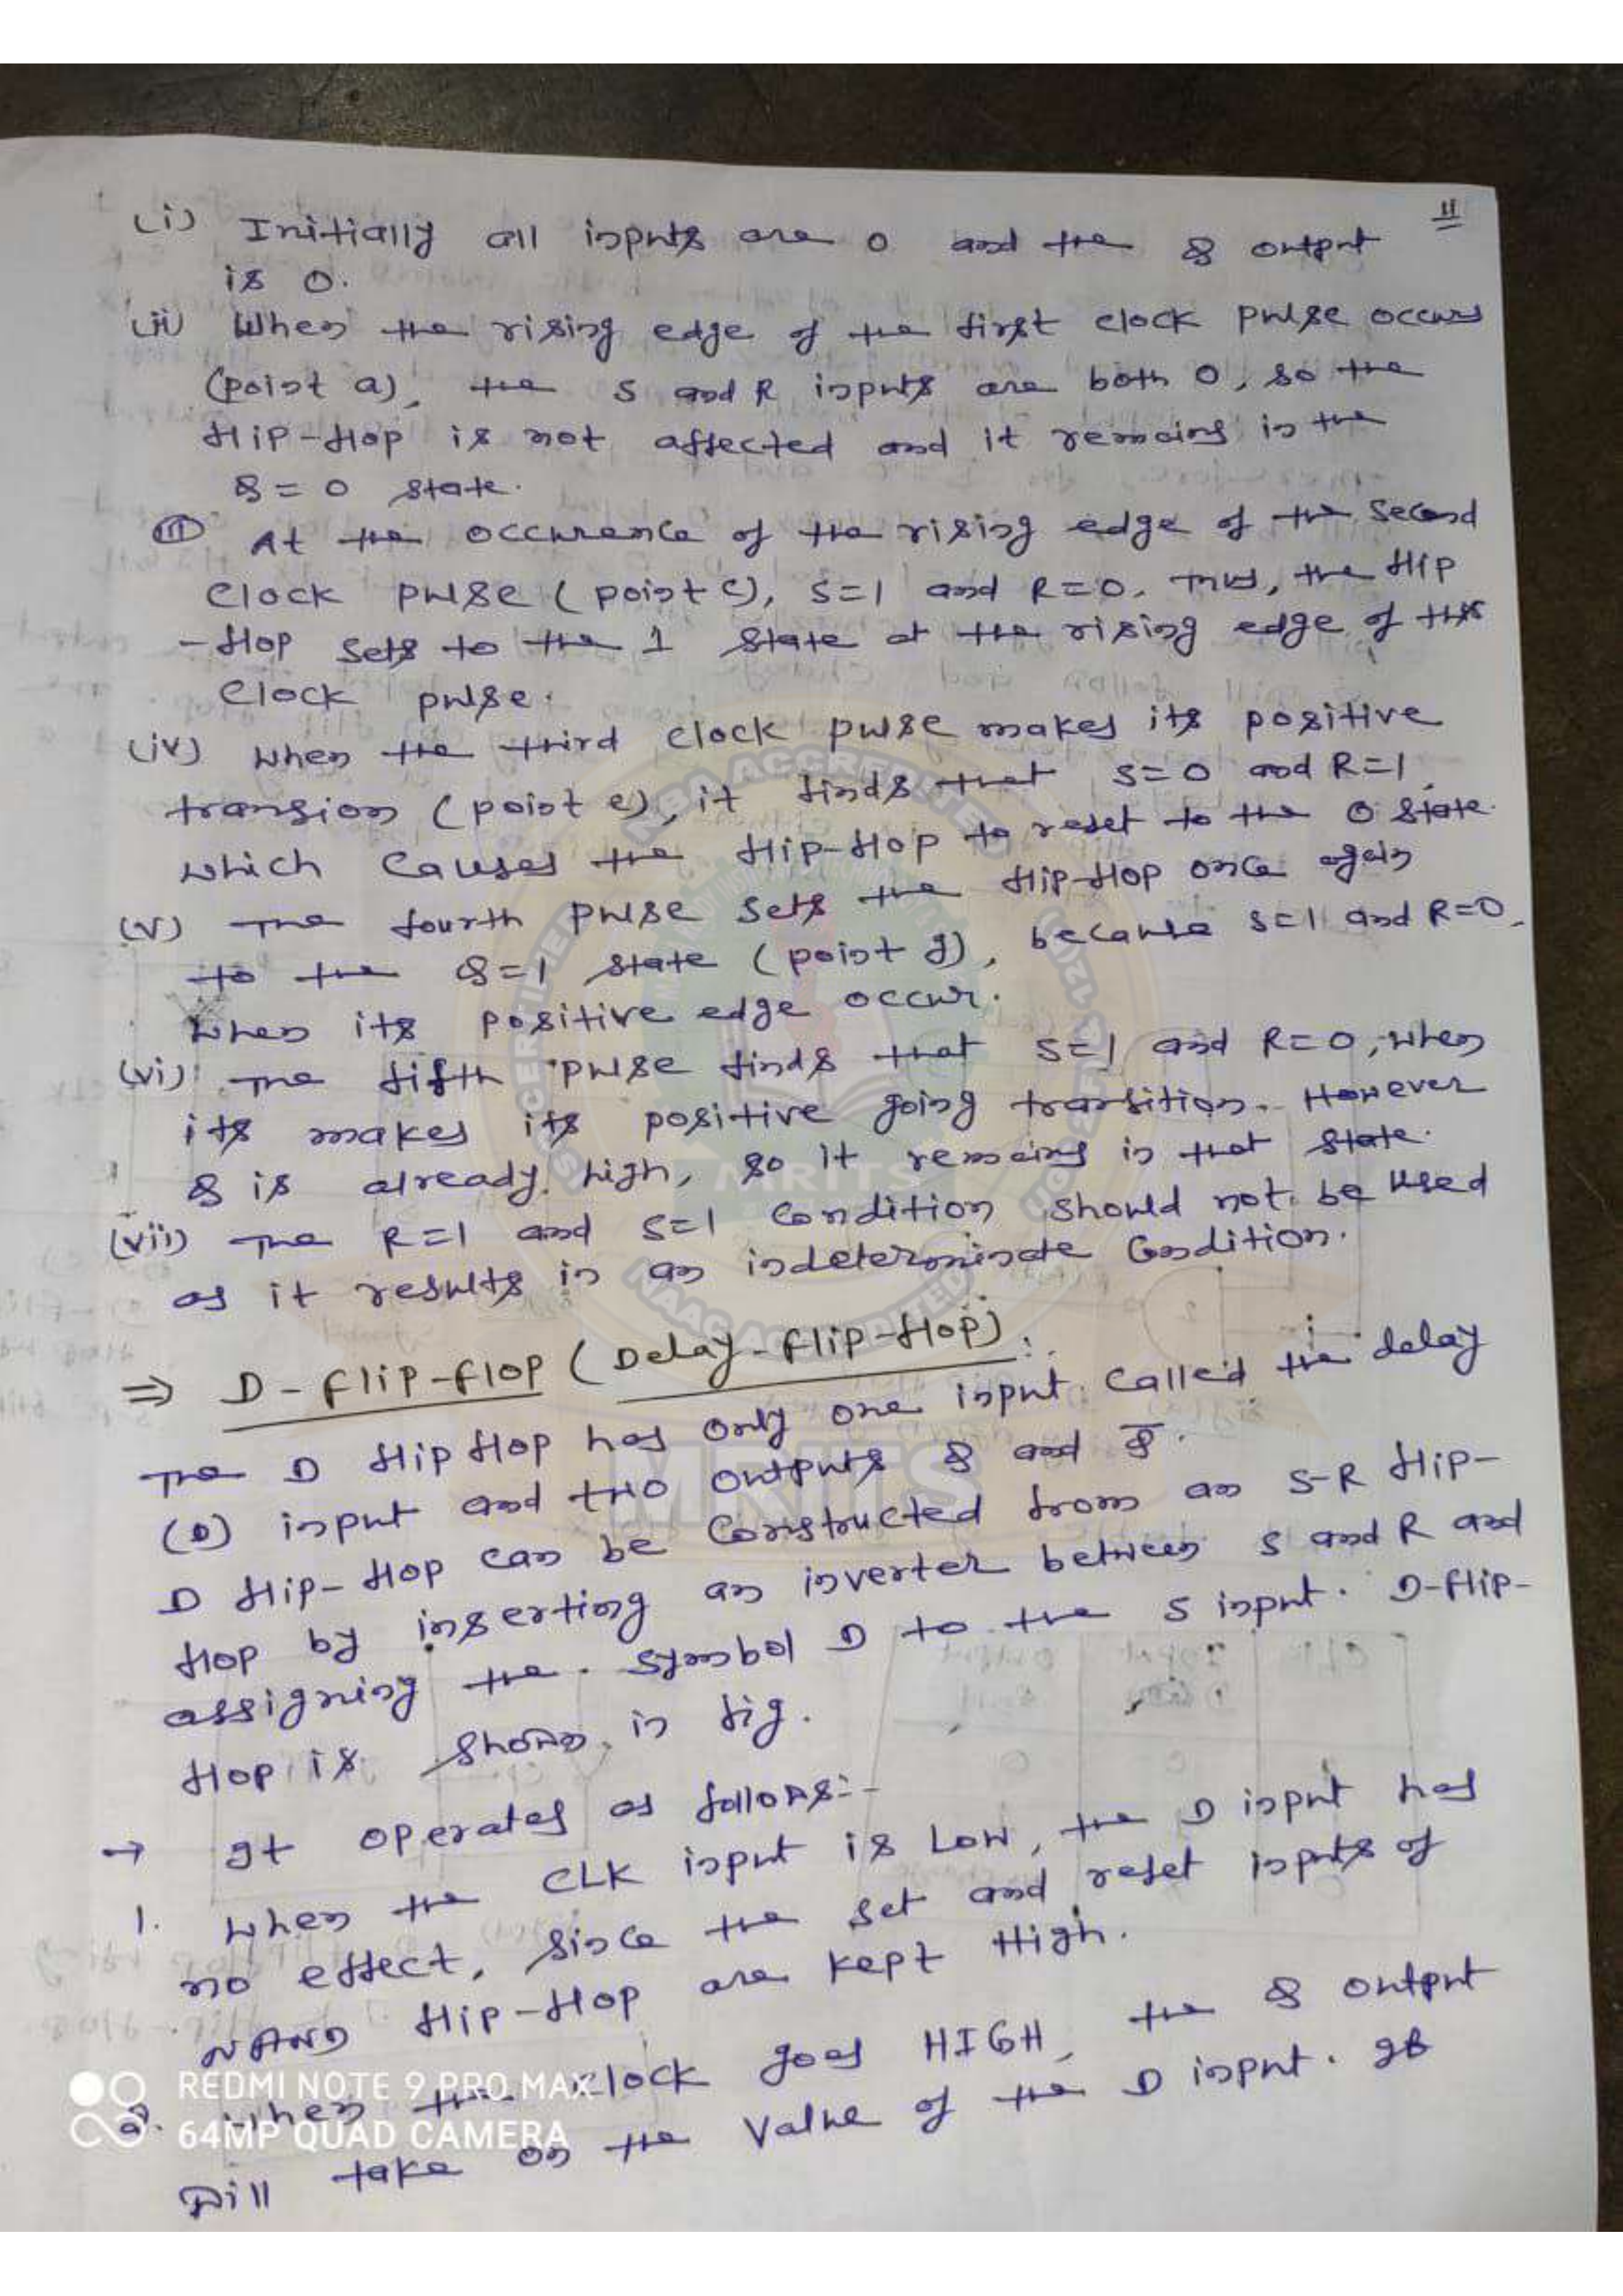 11
(i) Initially all inputs are 0 and the Q output
is 0.
(ii) When the rising edge of the first clock pulse occurs
(point a), the S and R inputs are both 0, so the
flip-flop is not affected and it remains in the
Q = 0 state.
(iii) At the occurence of the rising edge of the second
clock pulse (point c), S=1 and R=0. Thus, the flip
-flop sets to the 1 state at the rising edge of this
clock pulse.
(iv) when the third clock pulse makes its positive
transion (point e), it finds that S=0 and R=1,
which causes the flip-flop to reset to the 0 state.
(v) The fourth pulse sets the flip-flop once again
to the Q=1 state (point g), because S=1 and R=0,
when its positive edge occur.
(vi) The fifth pulse finds that S=1 and R=0, when
its makes its positive going transition. However
Q is already high, so it remains in that state.
(vii) The R=1 and S=1 condition should not be used
as it results in an indeterminate condition.
⇒ D-flip-flop (Delay-flip-flop):
The D flip flop has only one input called the delay
(D) input and two outputs Q and Q̅.
D flip-flop can be constructed from an S-R flip-
flop by inserting an inverter between S and R and
assigning the symbol D to the S input. D-flip-
flop is shown in fig.
→ It operates as follows:-
1. when the CLK input is Low, the D input has
no effect, since the set and reset inputs of
NAND flip-flop are kept High.
2. when the clock goes HIGH, the Q output
will take on the value of the D input. If
REDMI NOTE 9 PRO MAX
64MP QUAD CAMERA
NBA ACCREDITED
MRITS
NAAC ACCREDITED
MRITS